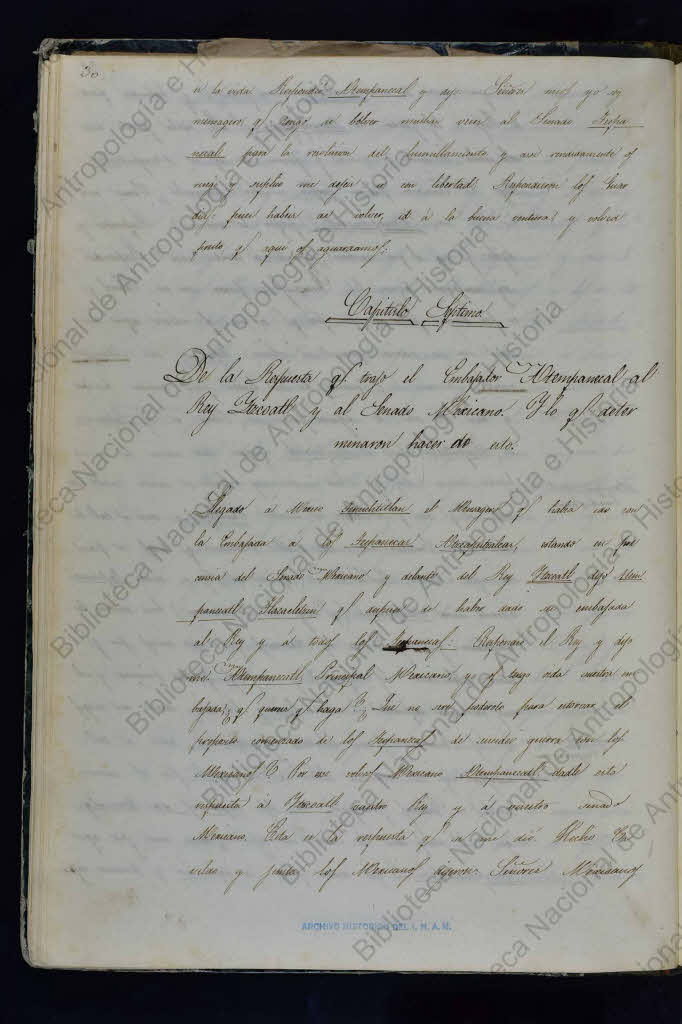 30
a la vida. Respondió Atempanecal y dijo Señores mios yo soy
mensagero, qe. tengo de bolver muchas veces al Senado Tecpa
necal para la resolucion del humillamiento y asi rendidamente os
ruego y suplico me dejeis ir con libertad. Respondieron los Guar
dias: pues habeis de volver, id á la buena ventura y volved
presto qe. aqui os aguardamos.
Capitulo Septimo.
De la Respuesta qe. trajo el Embajador Atempanecal al
Rey Yzcoatl y al Senado Mexicano. Y lo qe. deter
minaron hacer de esto.
Llegado á Mexico Tenuchtitlan el Mensagero qe. habia ido con
la Embajada á los Tecpanecas Azcaputzalcas, estando en pre
sencia del Senado Mexicano y delante del Rey Yzcoatl dijo Atem
panecatl Tlacaeleltzin qe. despues de haber dado su embajada
al Rey y á todos los Tecpanecas: Respondió el Rey y dijo
me: Atempanecatl Principal Mexicano, yo os tengo oida vuestra em
bajada; ¿qe. quereis qe. haga? Que no seré poderoso para estorvar el
proposito comenzado de los Tecpanecas de mover guerra con los
Mexicanos? Por eso volveos Mexicano Atempanecatl dadle esta
respuesta á Yzcoatl vuestro Rey y á vuestro senado
Mexicano. Esta es la respuesta qe. se me dió. Hecho Ca
vildo y juntos los Mexicanos dijeron: Señores Mexicanos
ARCHIVO HISTORICO DEL I. N. A. H.
Biblioteca Nacional de Antropología e Historia